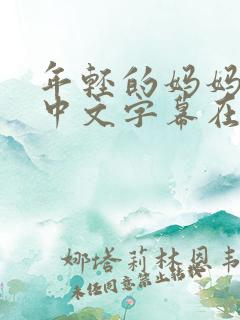 年轻的妈妈
中文字幕在
娜塔莉林恩韦
未任同意禁止转载